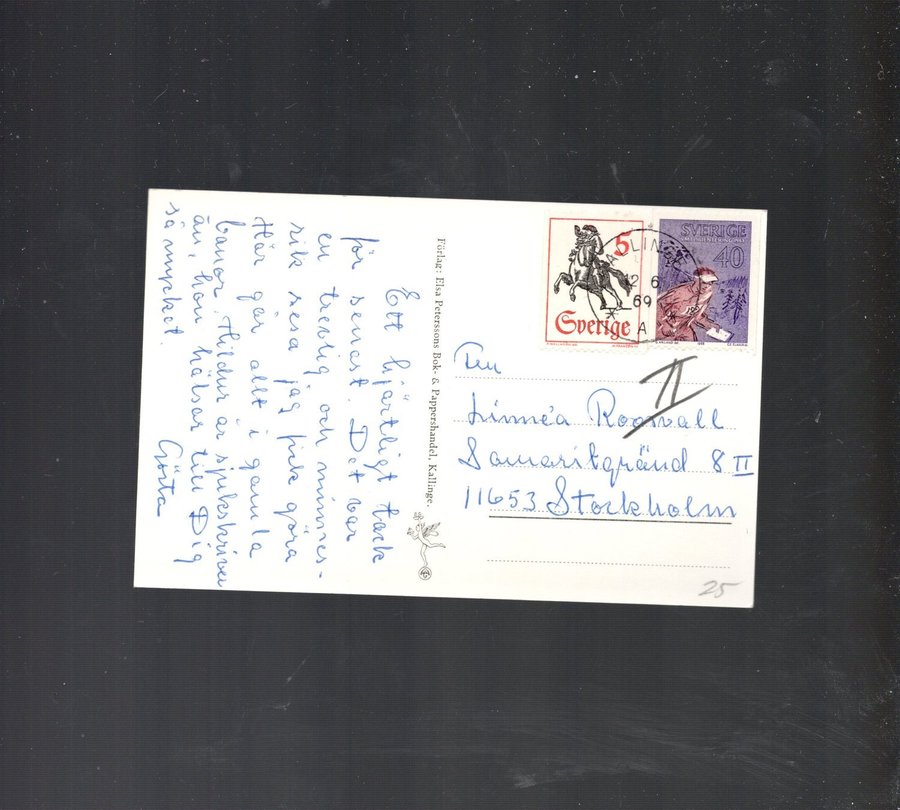 Ett hjärtligt tack
för senast. Det var
en trevlig och minnes-
rik resa jag fick göra
Här går allt i gamla
banor. Hildur är sjukskriven
än, hon hälsar till Dig
så mycket.
Gösta
Förlag: Elsa Peterssons Bok- & Pappershandel, Kallinge.
5
Sverige
SVERIGE
40
KALLINGE
2 6
69
A
II
Linnéa Roosvall
Samaritgränd 8 II
11653 Stockholm
25